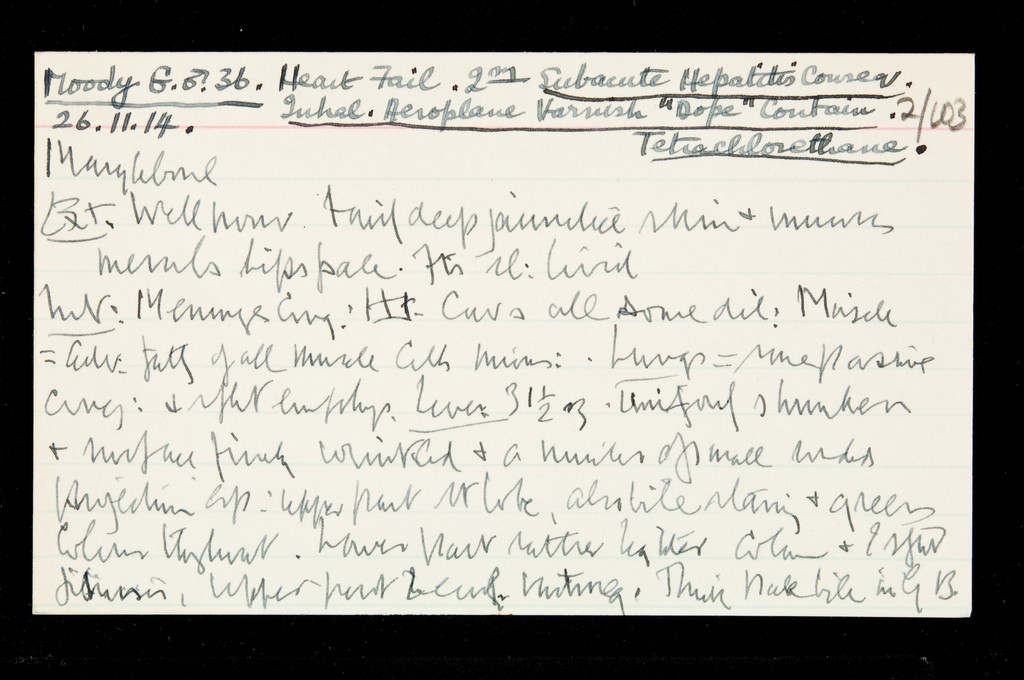 Moody G. ♂. 36. Heart Fail. 2ry Subacute Hepatitis Conseq.
26.11.14. Inhal. Aeroplane Varnish "Dope" Contain. 2/103
Tetrachlorethane.
Marylebone
Ext. Well nour. Fairly deep jaundice skin & mucus
membs lips pale. livid
Meninges Cong: Ht = Cavs all some dil: Muscle
= fatty of all muscle Lungs = some passive
cong: & slght emphys. Liver 31½ oz. Uniformly shrunken
& surface finely wrinkled & a number of small nodes
projection esp: upper part lobe, also bile staing & green
Colour thght. Lower part rather lighter colour & ? slght
fibrosis, upper part nutmeg. Thick dark bile in G B.